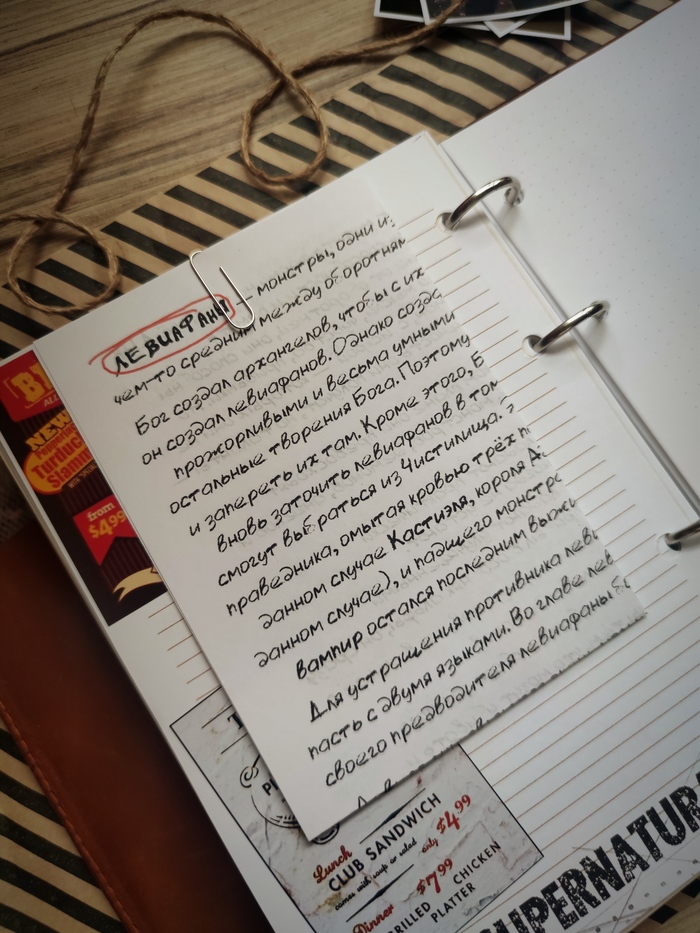 ЛЕВИАФАНЫ — монстры, одни из
чем-то средним между оборотням
Бог создал архангелов, чтобы с их
он создал левиафанов. Однако созда
прожорливыми и весьма умными
остальные творения Бога. Поэтому
и запереть их там. Кроме этого, Б
вновь заточить левиафанов в том
смогут выбраться из Чистилища.
праведника, омытая кровью трёх п
данном случае Кастиэля, короля А
данном случае), и падшего монстро
вампир остался последним выжи
Для устрашения противника леви
пасть с двумя языками. Во главе лев
своего предводителя левиафаны бо
NEW
Turduc
Slamm
from
$4.99
Lunch
CLUB SANDWICH
comes with soup or salad only $4.99
Dinner $7.99
GRILLED CHICKEN
PLATTER
SUPERNATURA